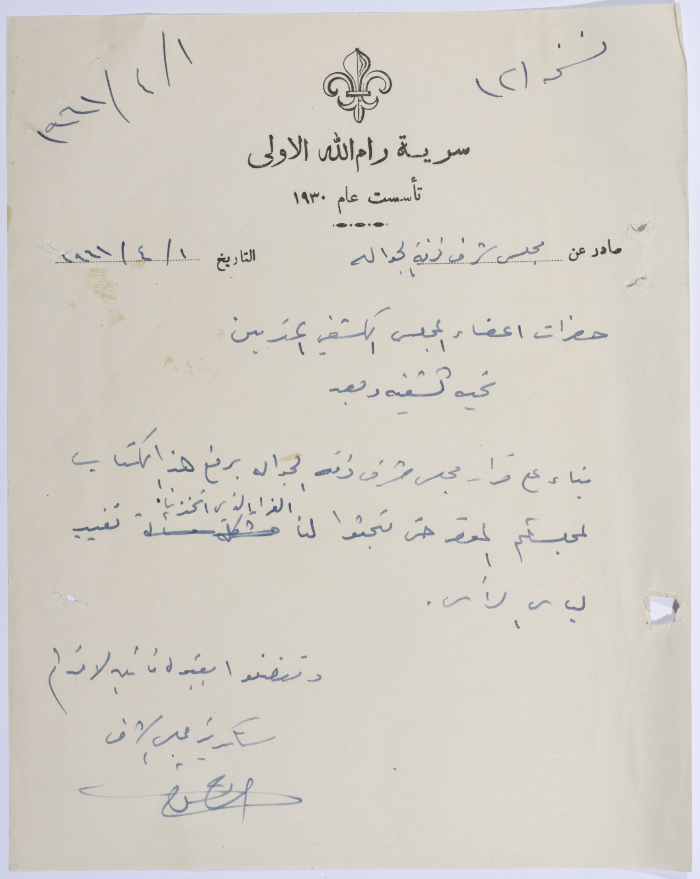 نسخة (٢)
١/٤/١٩٦١
سرية رام الله الاولى
تأسست عام ١٩٣٠
صادر عن مجلس شرف فرقة الجواله التاريخ ١/٤/١٩٦١
حضرات اعضاء المجلس الكشفي المحترمين
تحيه كشفيه وبعد
بناء على قرار مجلس شرف فرقة الجواله برفع هذا الكتاب
القرار الذي اتخذناه
لمجلسكم الموقر حتى تبحثوا لنا مشكلة مسألة تغيير
لباس الرأس.
وتفضلوا بقبول فائق الاحترام
سكرتير مجلس الشرف